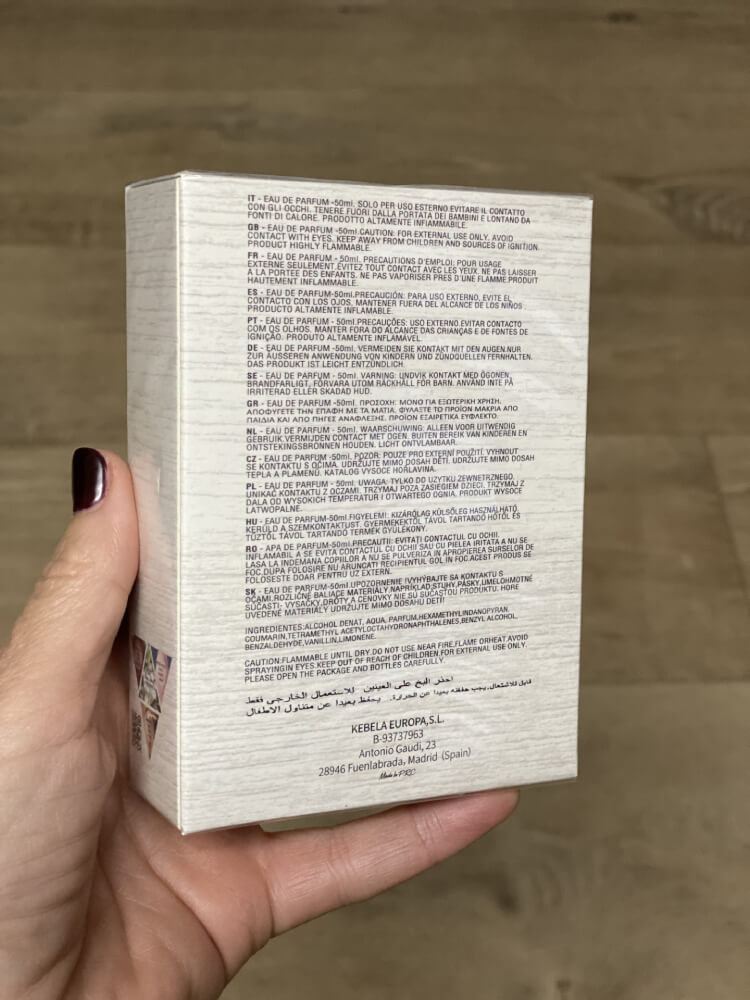 IT - EAU DE PARFUM -50ml. SOLO PER USO ESTERNO.EVITARE IL CONTATTO
CON GLI OCCHI. TENERE FUORI DALLA PORTATA DEI BAMBINI E LONTANO DA
FONTI DI CALORE. PRODOTTO ALTAMENTE INFIAMMABILE.
GB - EAU DE PARFUM -50ml.CAUTION: FOR EXTERNAL USE ONLY. AVOID
CONTACT WITH EYES. KEEP AWAY FROM CHILDREN AND SOURCES OF IGNITION.
PRODUCT HIGHLY FLAMMABLE.
FR - EAU DE PARFUM - 50ml. PRECAUTIONS D'EMPLOI: POUR USAGE
EXTERNE SEULEMENT.EVITEZ TOUT CONTACT AVEC LES YEUX. NE PAS LAISSER
A LA PORTEE DES ENFANTS. NE PAS VAPORISER PRES D'UNE FLAMME.PRODUIT
HAUTEMENT INFLAMMABLE.
ES - EAU DE PARFUM -50ml.PRECAUCIÓN: PARA USO EXTERNO. EVITE EL
CONTACTO CON LOS OJOS. MANTENER FUERA DEL ALCANCE DE LOS NIÑOS
PRODUCTO ALTAMENTE INFLAMABLE.
PT - EAU DE PARFUM - 50ml.PRECAUÇÕES: USO EXTERNO.EVITAR CONTACTO
COM OS OLHOS. MANTER FORA DO ALCANCE DAS CRIANÇAS E DE FONTES DE
IGNIÇÃO. PRODUTO ALTAMENTE INFLAMÁVEL.
DE - EAU DE PARFUM -50ml. VERMEIDEN SIE KONTAKT MIT DEN AUGEN.NUR
ZUR ÄUSSEREN ANWENDUNG VON KINDERN UND ZÜNDQUELLEN FERNHALTEN.
DAS PRODUKT IST LEICHT ENTZÜNDLICH.
SE - EAU DE PARFUM - 50ml. VARNING: UNDVIK KONTAKT MED ÖGONEN.
BRANDFARLIGT, FÖRVARA UTOM RÄCKHÅLL FÖR BARN. ANVÄND INTE PÅ
IRRITERAD ELLER SKADAD HUD.
GR - EAU DE PARFUM -50ml. ΠΡΟΣΟΧΗ: ΜΟΝΟ ΓΙΑ ΕΞΩΤΕΡΙΚΗ ΧΡΗΣΗ.
ΑΠΟΦΥΓΕΤΕ ΤΗΝ ΕΠΑΦΗ ΜΕ ΤΑ ΜΑΤΙΑ. ΦΥΛΑΞΤΕ ΤΟ ΠΡΟΪΟΝ ΜΑΚΡΙΑ ΑΠΟ
ΠΑΙΔΙΑ ΚΑΙ ΑΠΟ ΠΗΓΕΣ ΑΝΑΦΛΕΞΗΣ. ΠΡΟΪΟΝ ΕΞΑΙΡΕΤΙΚΑ ΕΥΦΛΕΚΤΟ.
NL - EAU DE PARFUM - 50ml. WAARSCHUWING: ALLEEN VOOR UITWENDIG
GEBRUIK.VERMIJDEN CONTACT MET OGEN. BUITEN BEREIK VAN KINDEREN EN
ONTSTEKINGSBRONNEN HOUDEN. LICHT ONTVLAMBAAR.
CZ - EAU DE PARFUM -50ml. POZOR: POUZE PRO EXTERNÍ POUŽITÍ. VYHNOUT
SE KONTAKTU S OČIMA. UDRŽUJTE MIMO DOSAH DĚTÍ. UDRŽUJTE MIMO DOSAH
TEPLA A PLAMENŮ. KATALOG VYSOCE HOŘLAVINA.
PL - EAU DE PARFUM - 50ml. UWAGA: TYLKO DO UZYTKU ZEWNETRZNEGO.
UNIKAC KONTAKTU Z OCZAMI. TRZYMAJ POZA ZASIEGIEM DZIECI. TRZYMAJ Z
DALA OD WYSOKICH TEMPERATUR I OTWARTEGO OGNIA. PRODUKT WYSOCE
LATWOPALNE.
HU - EAU DE PARFUM-50ml.FIGYELEM!. KIZÁRÓLAG KÜLSŐLEG HASZNÁLHATÓ.
KERÜLD A SZEMKONTAKTUST. GYERMEKEKTŐL TÁVOL TARTANDÓ HŐTŐL ÉS
TŰZTŐL TÁVOL TARTANDÓ TERMÉK GYÚLÉKONY.
RO - APA DE PARFUM-50ml.PRECAUTII: EVITAȚI CONTACTUL CU OCHII.
INFLAMABIL A SE EVITA CONTACTUL CU OCHII SAU CU PIELEA IRITATA A NU SE
LASA LA INDEMANA COPIILOR A NU SE PULVERIZA IN APROPIEREA SURSELOR DE
FOC.DUPA FOLOSIRE NU ARUNCATI RECIPIENTUL GOL IN FOC.ACEST PRODUS SE
FOLOSESTE DOAR PENTRU UZ EXTERN.
SK - EAU DE PARFUM-50ml.UPOZORNENIE !VYHÝBAJTE SA KONTAKTU S
OČAMI.ROZLIČNÉ BALIACE MATERIÁLY,NAPRÍKLAD;STUHY,PÁSKY,UMELOHMOTNÉ
SÚČASTI; VYSAČKY,DRÔTY A CENOVKY NIE SÚ SÚČASŤOU PRODUKTU. HORE
UVEDENÉ MATERIÁLY UDRŽUJTE MIMO DOSAHU DETÍ!
INGREDIENTES:ALCOHOL DENAT, AQUA, PARFUM,HEXAMETHYLINDANOPYRAN,
COUMARIN,TETRAMETHYL ACETYLOCTAHYDRONAPHTHALENES,BENZYL ALCOHOL,
BENZALDEHYDE,VANILLIN,LIMONENE.
CAUTION:FLAMMABLE UNTIL DRY.DO NOT USE NEAR FIRE,FLAME ORHEAT.AVOID
SPRAYINGIN EYES.KEEP OUT OF REACH OF CHILDREN.FOR EXTERNAL USE ONLY.
PLEASE OPEN THE PACKAGE AND BOTTLES CAREFULLY.
احذر البخ على العينين للاستعمال الخارجي فقط
قابل للاشتعال.يجب حفظه بعيدا عن الحرارة. يحفظ بعيدا عن متناول الاطفال
KEBELA EUROPA,S.L.
B-93737963
Antonio Gaudí, 23
28946 Fuenlabrada, Madrid (Spain)
Made In P.R.C